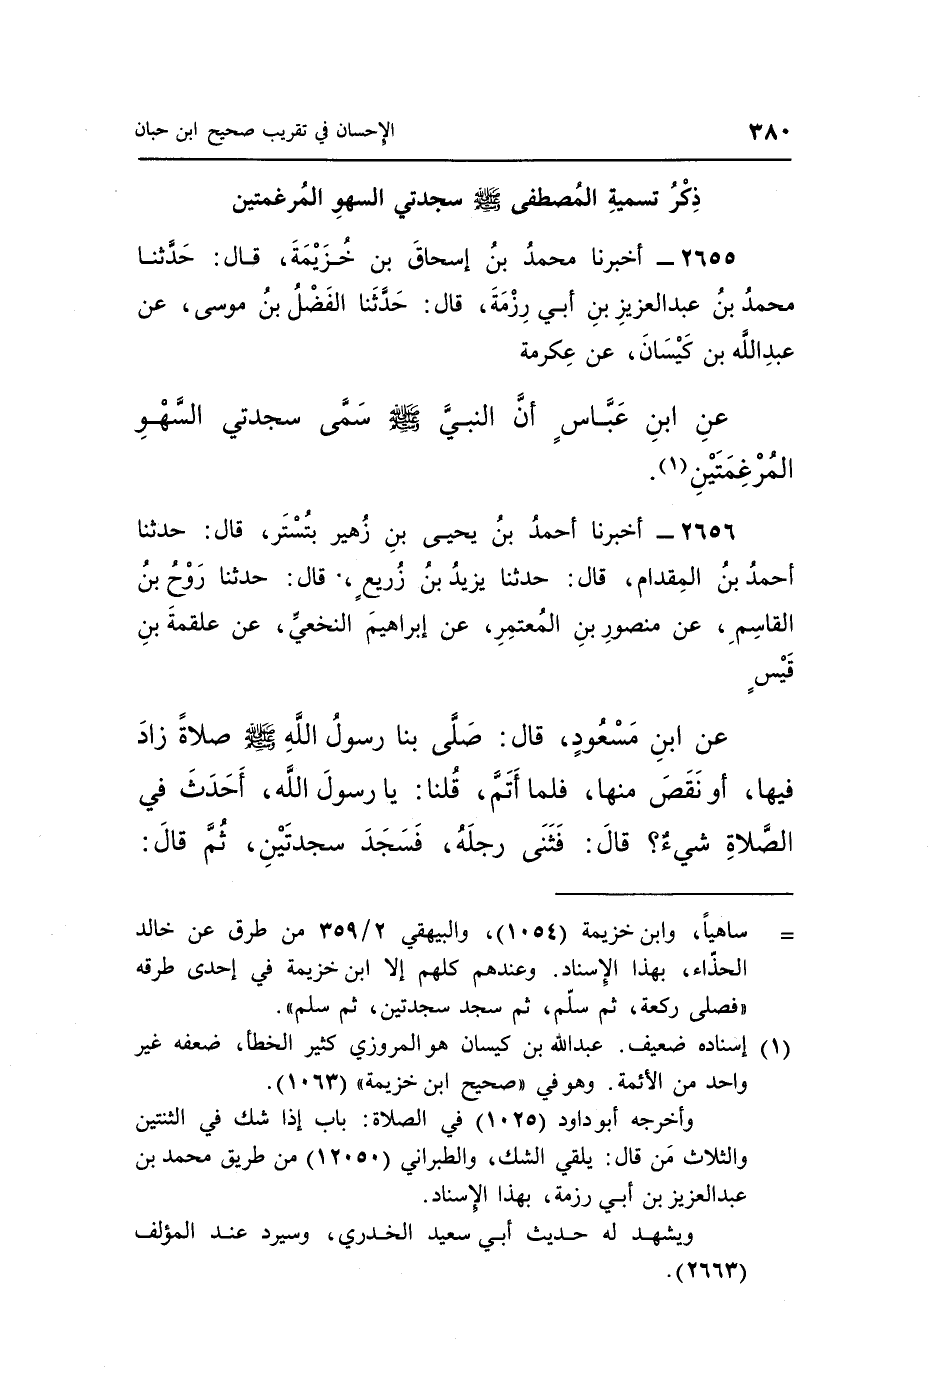 ٣٨٠
الإحسان في تقريب صحيح ابن حبان
ذِكْرُ تسميةِ المُصطفى ﷺ سجدتي السهوِ المُرغمتين
٢٦٥٥ ـ أخبرنا محمدُ بنُ إسحاقَ بن خُزَيْمَةَ، قال: حَدَّثنا
محمدُ بنُ عبدالعزيزِ بنِ أبي رِزْمَةَ، قال: حَدَّثَنا الفَضْلُ بنُ موسى، عن
عبدِاللَّه بن كَيْسَانَ، عن عِكرمة
عنِ ابنِ عَبَّاسٍ أنَّ النبيَّ ﷺ سَمَّى سجدتي السَّهْوِ
المُرْغِمَتَيْنِ(١).
٢٦٥٦ ـ أخبرنا أحمدُ بنُ يحيى بنِ زُهير بتُسْتَر، قال: حدثنا
أحمدُ بنُ المِقدام، قال: حدثنا يزيدُ بنُ زُريعٍ، قال: حدثنا رَوْحُ بنُ
القاسِمِ، عن منصورِ بنِ المُعتمِرِ، عن إبراهيمَ النخعيِّ، عن علقمةَ بنِ
قَيْسٍ
عن ابنِ مَسْعُودٍ، قال: صَلَّى بنا رسولُ اللَّهِ ﷺ صلاةً زادَ
فيها، أو نَقَصَ منها، فلما أَتَمَّ، قُلنا: يا رسولَ اللَّه، أَحَدَثَ في
الصَّلاةِ شيءٌ؟ قالَ: فَثَنَى رجلَهُ، فَسَجَدَ سجدتَيْنِ، ثُمَّ قالَ:
= ساهياً، وابن خزيمة (١٠٥٤)، والبيهقي ٣٥٩/٢ من طرق عن خالد
الحذّاء، بهذا الإِسناد. وعندهم كلهم إلا ابن خزيمة في إحدى طرقه
«فصلى ركعة، ثم سلّم، ثم سجد سجدتين، ثم سلم».
(١) إسناده ضعيف. عبدالله بن كيسان هو المروزي كثير الخطأ، ضعفه غير
واحد من الأئمة. وهو في «صحيح ابن خزيمة» (١٠٦٣).
وأخرجه أبو داود (١٠٢٥) في الصلاة: باب إذا شك في الثنتين
والثلاث مَن قال: يلقي الشك، والطبراني (١٢٠٥٠) من طريق محمد بن
عبدالعزيز بن أبي رزمة، بهذا الإِسناد.
ويشهد له حديث أبي سعيد الخدري، وسيرد عند المؤلف
(٢٦٦٣).